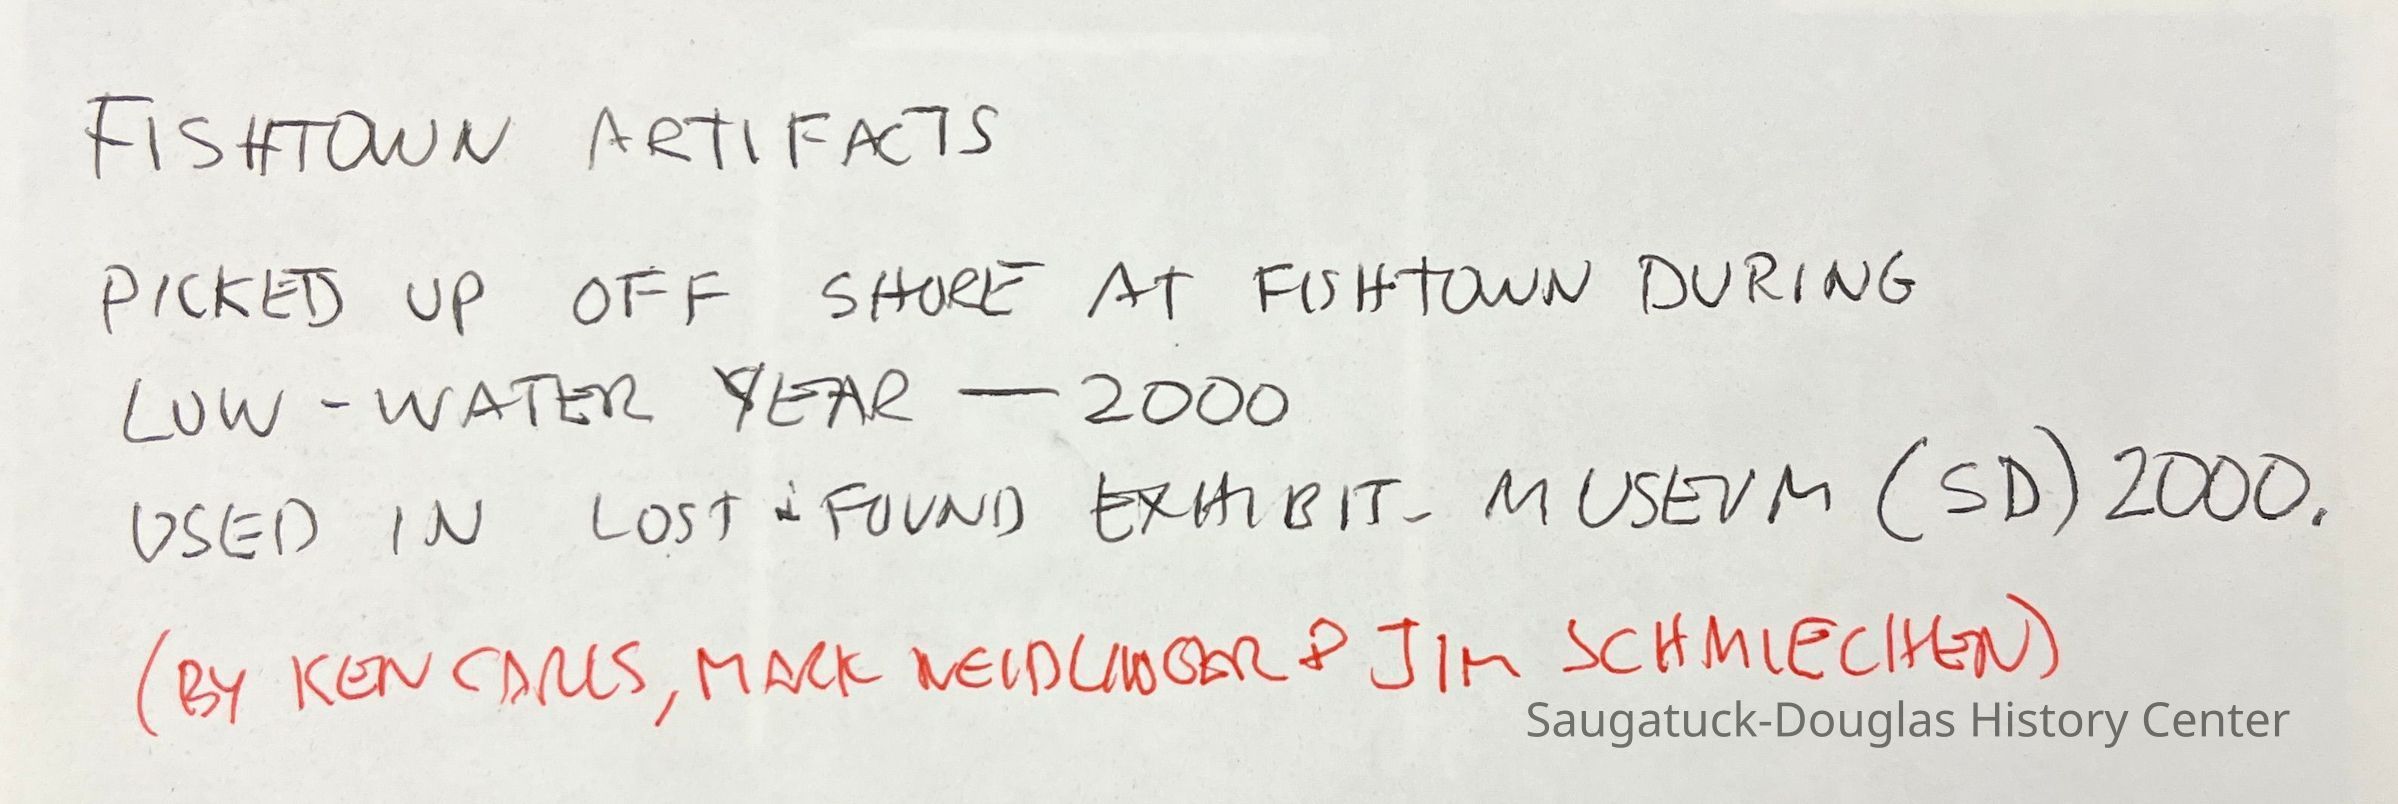 FISHTOWN ARTIFACTS
PICKED UP OFF SHORE AT FISHTOWN DURING
LOW-WATER YEAR — 2000
USED IN LOST & FOUND EXHIBIT- MUSEUM (SD) 2000.
(BY KEN CARLS, MARK NEIDLINGER & JIM SCHMIECHEN)
Saugatuck-Douglas History Center